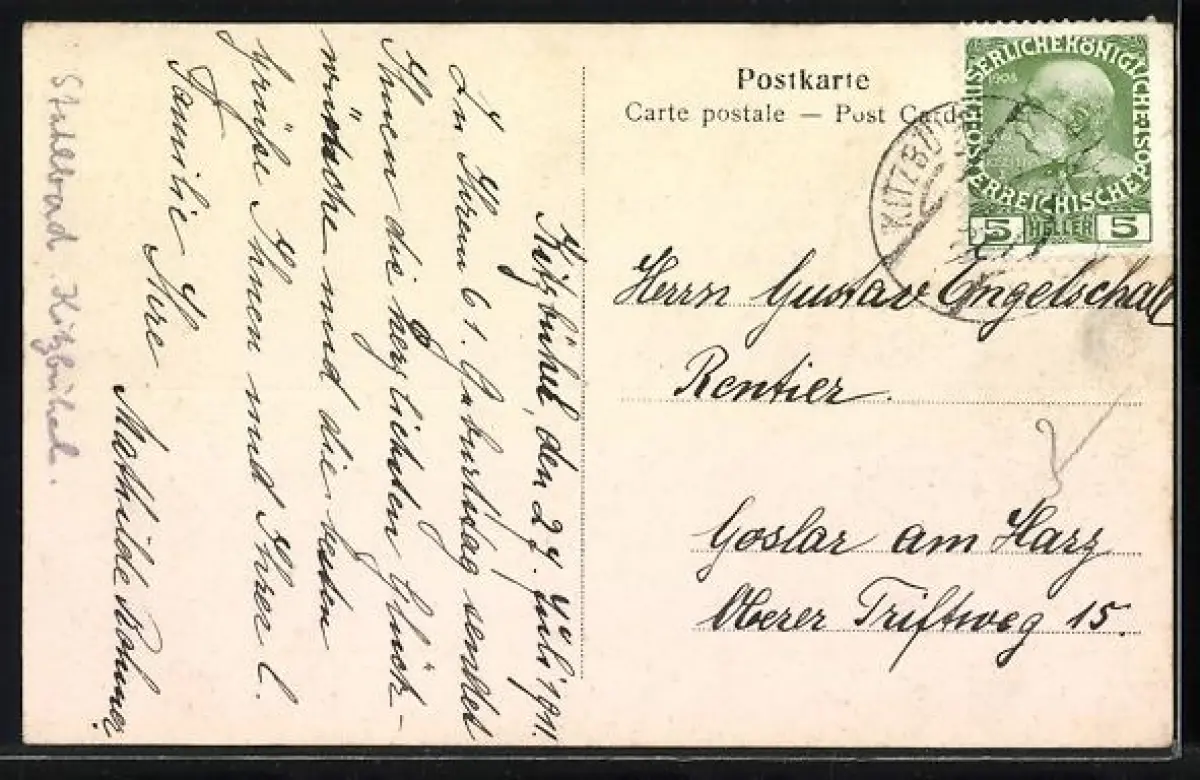 Postkarte
Carte postale — Post Card
KAISERLICHE KÖNIGLICHE ÖSTERREICHISCHE POST
1908
5 HELLER 5
KITZBÜ
Herrn Gustav Engelschall
Rentier.
Goslar am Harz
Oberer Triftweg 15.
Kitzbühel, den 24. Juli 1911.
Zu Ihrem 61. Geburtstag sendet
Ihnen die herzlichsten Glück-
wünsche und die besten
Grüße Ihnen und Ihrer l.
Familie Ihre
Mathilde
Stahlbad Kitzbühel.